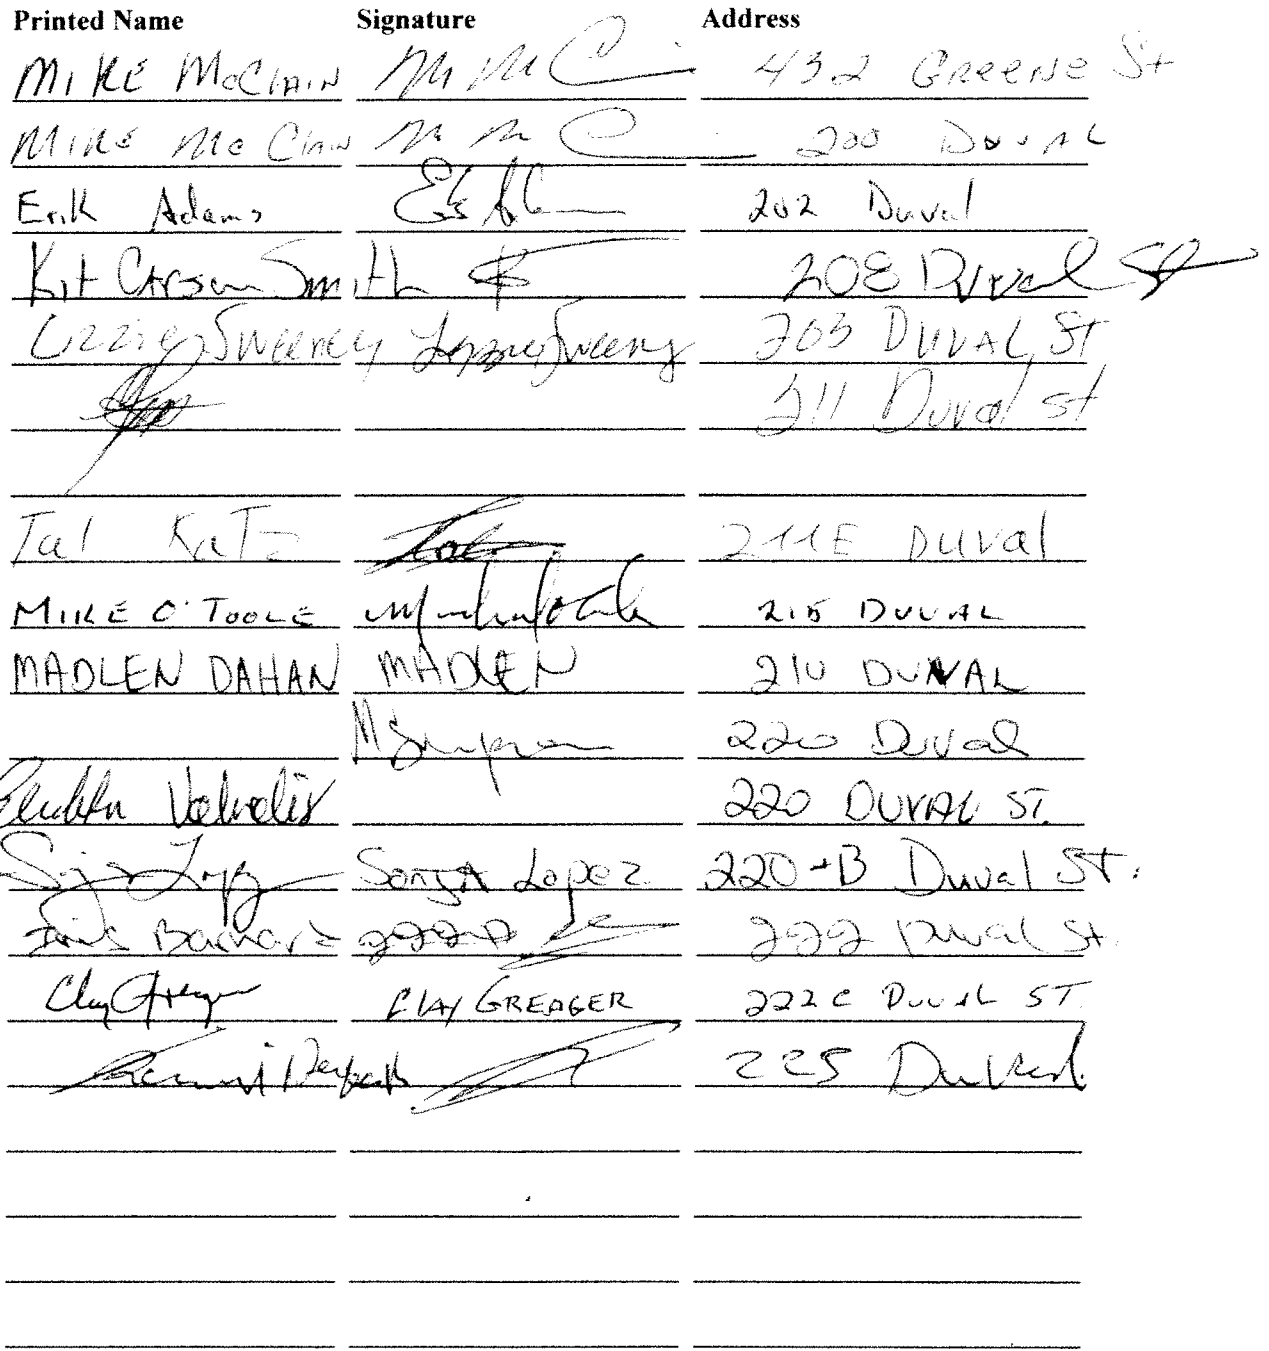 Printed Name Signature Address
MIKE McClAIN M McC 432 GREENE St
MIKE Mc Clain M Mc C 200 DUVAL
Erik Adams 202 Duval
Kit Carson Smith 208 Duval St
Lizzie Sweeney Lizzie Sweeny 203 DUVAL St
211 Duval st
Tal KaTz 211E DUVal
MIKE O'TOOLE 215 DUVAL
MADLEN DAHAN MADLEN 210 DUVAL
M Simpson 220 Duval
220 DUVAL ST.
Sonja Lopez Sonja Lopez 220-B Duval St.
222 Duval St.
Clay Greager CLAY GREAGER 222C DUVAL ST.
225 Duval